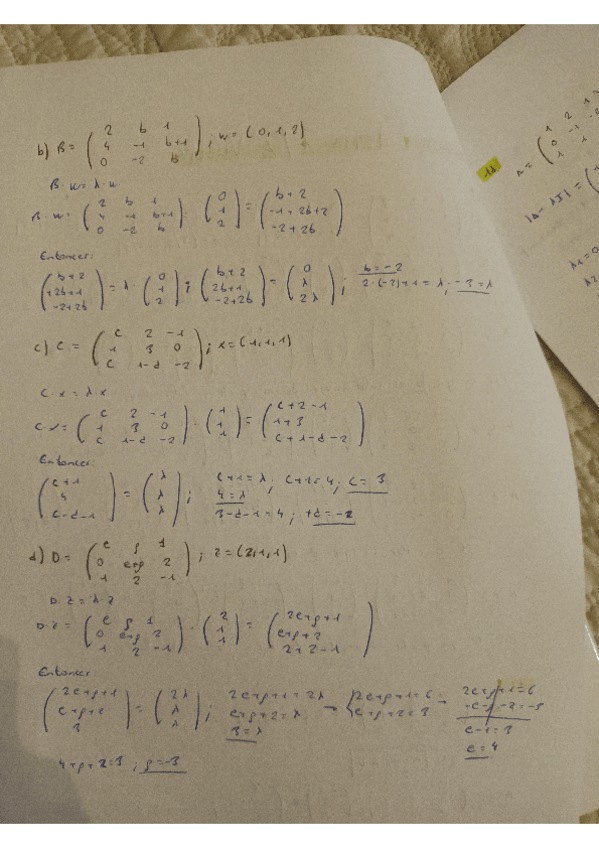 b) B = ( 2 b 1 ; 4 -1 b+1 ; 0 -2 b ) ; w = (0,1,2)
B·w = λ·w
B·w = ( 2 b 1 ; 4 -1 b+1 ; 0 -2 b ) · ( 0 ; 1 ; 2 ) = ( b+2 ; -1+2b+2 ; -2+2b )
Entonces:
( b+2 ; +2b+1 ; -2+2b ) = λ · ( 0 ; 1 ; 2 ) ; ( b+2 ; 2b+1 ; -2+2b ) = ( 0 ; λ ; 2λ ) ; b = -2
2·(-2)+1 = λ ; -3 = λ
c) C = ( c 2 -1 ; 1 3 0 ; c 1-d -2 ) ; x = (1,1,1)
C·x = λ·x
C·x = ( c 2 -1 ; 1 3 0 ; c 1-d -2 ) · ( 1 ; 1 ; 1 ) = ( c+2-1 ; 1+3 ; c+1-d-2 )
Entonces:
( c+1 ; 4 ; c-d-1 ) = ( λ ; λ ; λ ) ; c+1 = λ ; c+1 = 4 ; c = 3
4 = λ
3-d-1 = 4 ; +d = -2
d) D = ( e f 1 ; 0 e+f 2 ; 1 2 -1 ) ; z = (2,1,1)
D·z = λ·z
D·z = ( e f 1 ; 0 e+f 2 ; 1 2 -1 ) · ( 2 ; 1 ; 1 ) = ( 2e+f+1 ; e+f+2 ; 2+2-1 )
Entonces:
( 2e+f+1 ; e+f+2 ; 3 ) = ( 2λ ; λ ; λ ) ; 2e+f+1 = 2λ → { 2e+f+1 = 6 → 2e+f+1 = 6
e+f+2 = λ e+f+2 = 3 -e-f-2 = -3
3 = λ e-1 = 3
e = 4
4+f+2 = 3 ; f = -3
12
A = ( 1 2
0 -1 -2
1 1
|A - λI| = (
λ1 = 0
λ2